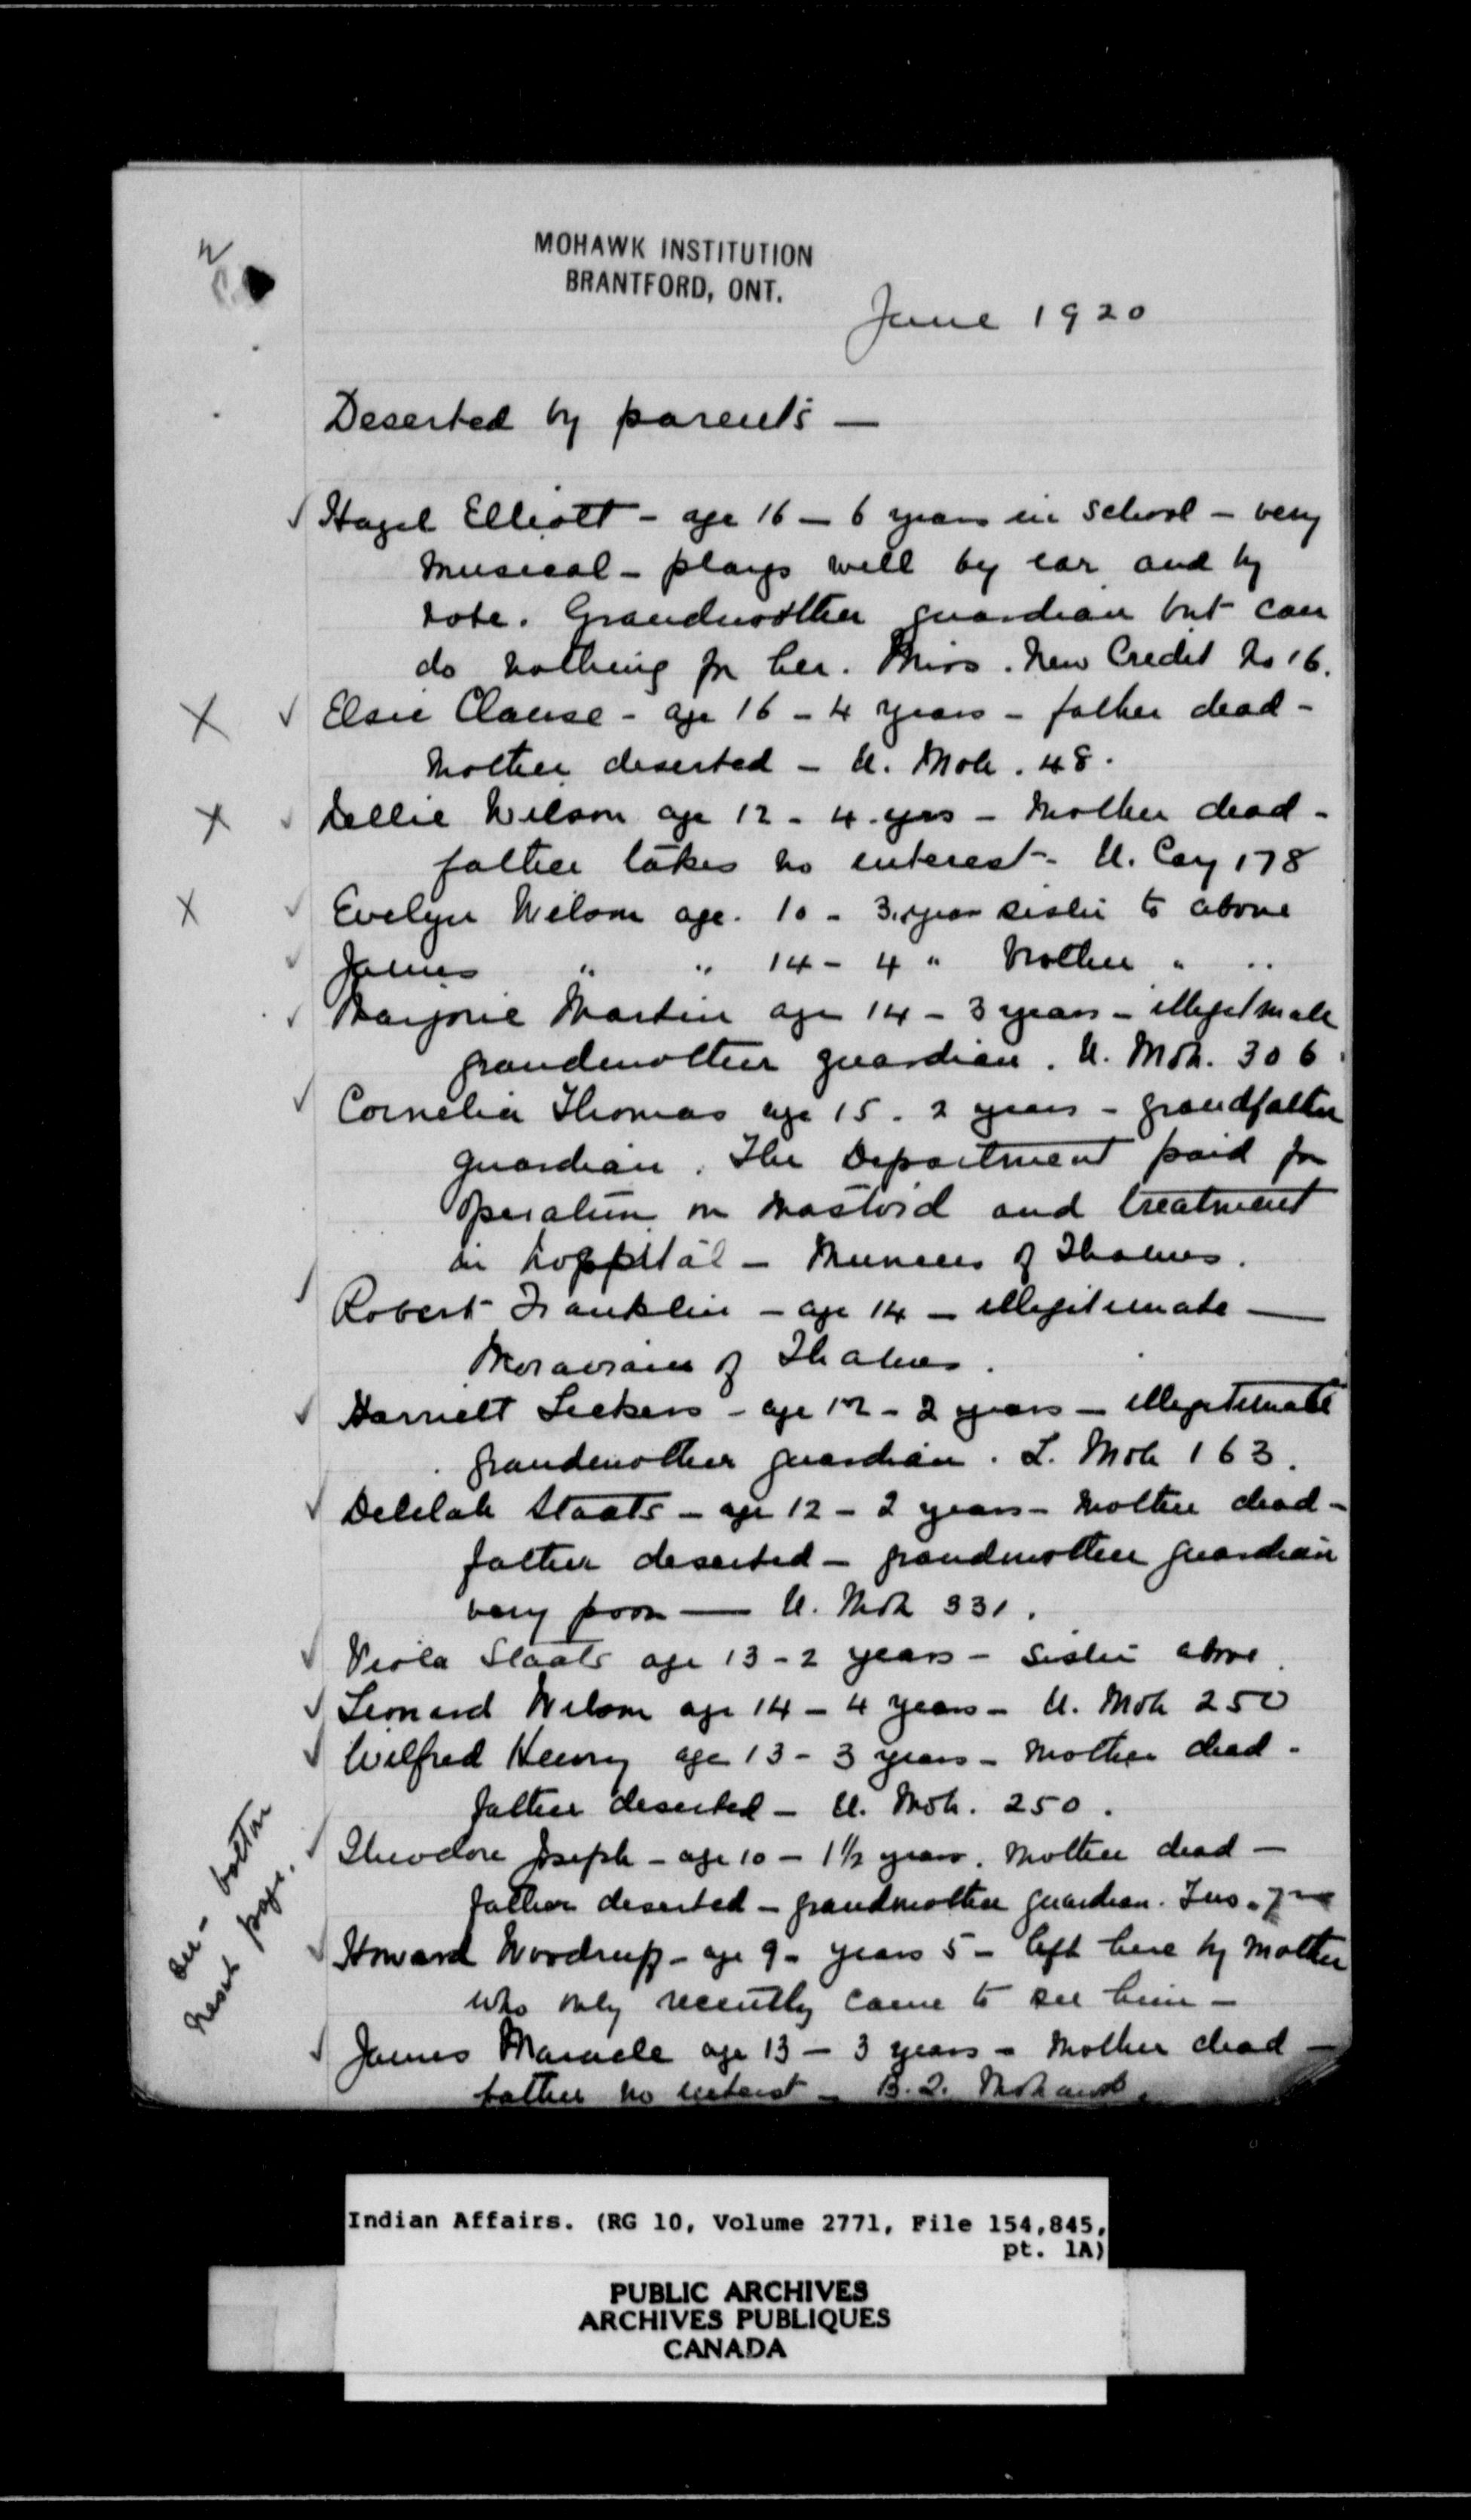 MOHAWK INSTITUTION
BRANTFORD, ONT.
June 1920
Deserted by parents —
✓ Hazel Elliott - age 16 - 6 years in School - very
musical - plays well by ear and by
note. Grandmother guardian but can
do nothing for her. Miss. New Credit No 16.
X ✓ Elsie Clause - age 16 - 4 years - father dead -
Mother deserted - U. Moh. 48.
X ✓ Nellie Wilson age 12 - 4 yrs - Mother dead -
father takes no interest - U. Cay 178
X ✓ Evelyn Wilson age. 10 - 3 years sister to above
✓ James " " 14 - 4 " brother " "
✓ Marjorie Martin age 14 - 3 years - illegitimate
grandmother guardian. U. Moh. 306.
✓ Cornelia Thomas age 15. 2 years - grandfather
guardian. The Department paid for
Operation on Mastoid and treatment
in hospital - Muncees of Thames.
✓ Robert Franklin - age 14 - illegitimate —
Moravians of Thames.
✓ Harriett Seekers - age 12 - 2 years - illegitimate
grandmother guardian. L. Moh 163.
✓ Delilah Staats - age 12 - 2 years - Mother dead -
father deserted - grandmother guardian
very poor — U. Moh 331.
✓ Viola Staats age 13 - 2 years - Sister above.
✓ Leonard Wilson age 14 - 4 years - U. Moh 250
✓ Wilfred Henry age 13 - 3 years - Mother dead -
father deserted - U. Moh. 250.
✓ Theodore Joseph - age 10 - 1½ years. Mother dead —
father deserted - grandmother guardian. Tus.
✓ Howard Woodruff - age 9 - years 5 - left here by Mother
who only recently came to see him -
✓ James Maracle age 13 - 3 years - Mother dead -
father no interest - B. Q. Mohawk.
See - bottom
next page.
Indian Affairs. (RG 10, Volume 2771, File 154,845,
pt. 1A)
PUBLIC ARCHIVES
ARCHIVES PUBLIQUES
CANADA